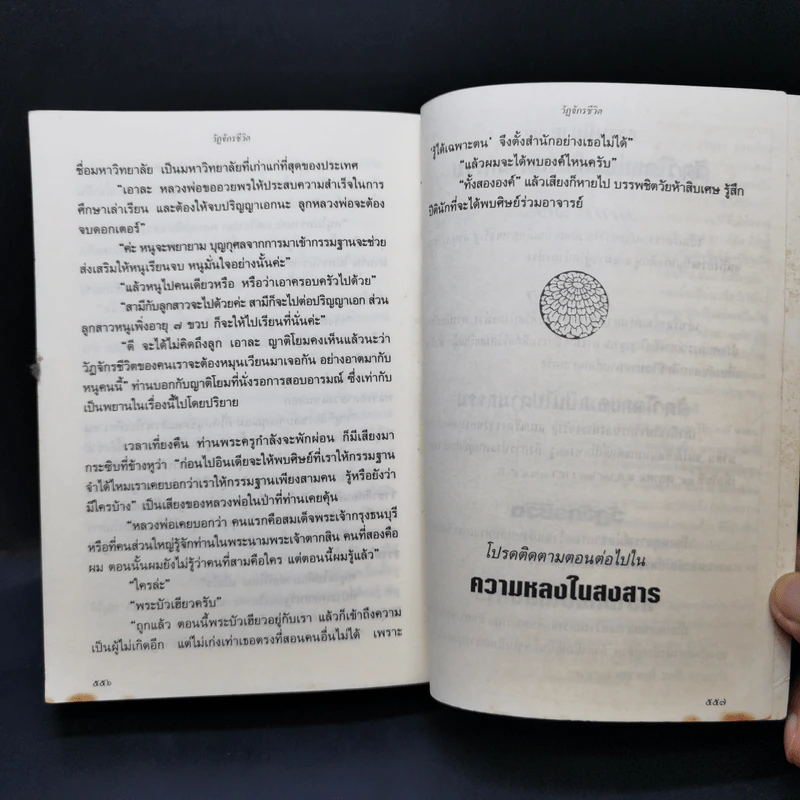 วัฏจักรชีวิต
ชื่อมหาวิทยาลัย เป็นมหาวิทยาลัยที่เก่าแก่ที่สุดของประเทศ
“เอาละ หลวงพ่อขออวยพรให้ประสบความสำเร็จในการ
ศึกษาเล่าเรียน และต้องให้จบปริญญาเอกนะ ลูกหลวงพ่อจะต้อง
จบดอกเตอร์”
“ค่ะ หนูจะพยายาม บุญกุศลจากการมาเข้ากรรมฐานจะช่วย
ส่งเสริมให้หนูเรียนจบ หนูมั่นใจอย่างนั้นค่ะ”
“แล้วหนูไปคนเดียวหรือ หรือว่าเอาครอบครัวไปด้วย”
“สามีกับลูกสาวจะไปด้วยค่ะ สามีก็จะไปต่อปริญญาเอก ส่วน
ลูกสาวหนูเพิ่งอายุ ๗ ขวบ ก็จะให้ไปเรียนที่นั่นค่ะ”
“ดี จะได้ไม่คิดถึงลูก เอาละ ญาติโยมคงเห็นแล้วนะว่า
วัฏจักรชีวิตของคนเราจะต้องหมุนเวียนมาเจอกัน อย่างอาตมากับ
หนูคนนี้” ท่านบอกกับญาติโยมที่นั่งรอการสอบอารมณ์ ซึ่งเท่ากับ
เป็นพยานในเรื่องนี้ไปโดยปริยาย
เวลาเที่ยงคืน ท่านพระครูกำลังจะพักผ่อน ก็มีเสียงมา
กระซิบที่ข้างหูว่า “ก่อนไปอินเดียจะให้พบศิษย์ที่เราให้กรรมฐาน
จำได้ไหมเราเคยบอกว่าเราให้กรรมฐานเพียงสามคน รู้หรือยังว่า
มีใครบ้าง” เป็นเสียงของหลวงพ่อในป่าที่ท่านเคยคุ้น
“หลวงพ่อเคยบอกว่า คนแรกคือสมเด็จพระเจ้ากรุงธนบุรี
หรือที่คนส่วนใหญ่รู้จักท่านในพระนามพระเจ้าตากสิน คนที่สองคือ
ผม ตอนนั้นผมยังไม่รู้ว่าคนที่สามคือใคร แต่ตอนนี้ผมรู้แล้ว”
“ใครล่ะ”
“พระบัวเฮียวครับ”
“ถูกแล้ว ตอนนี้พระบัวเฮียวอยู่กับเรา แล้วก็เข้าถึงความ
เป็นผู้ไม่เกิดอีก แต่ไม่เก่งเท่าเธอตรงที่สอนคนอื่นไม่ได้ เพราะ
๕๕๖
วัฏจักรชีวิต
‘รู้ได้เฉพาะตน’ จึงตั้งสำนักอย่างเธอไม่ได้”
“แล้วผมจะได้พบองค์ไหนครับ”
“ทั้งสององค์” แล้วเสียงก็หายไป บรรพชิตวัยห้าสิบเศษ รู้สึก
ปีตินักที่จะได้พบศิษย์ร่วมอาจารย์
โปรดติดตามตอนต่อไปใน
ความหลงในสงสาร
๕๕๗